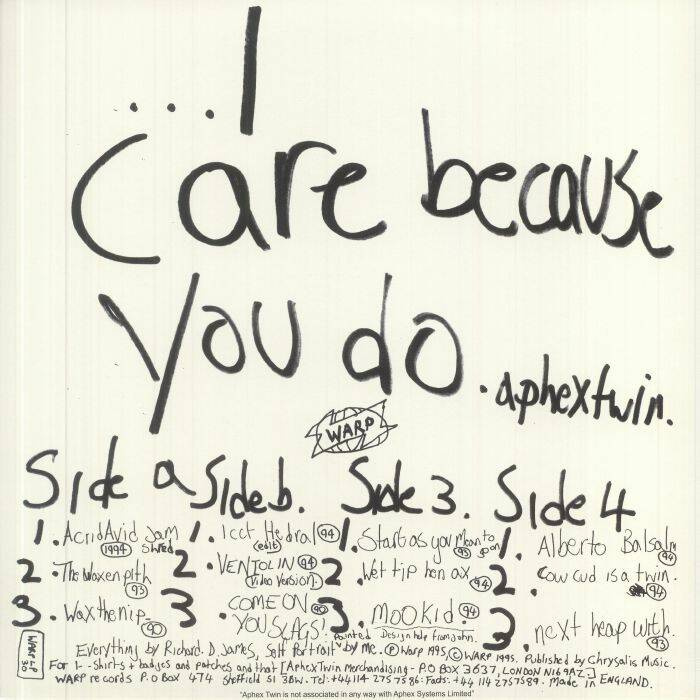 ...I
Care because
you do.
aphextwin.
WARP
Side a
1. Acrid Avid Jam
1994 Shred
2. The Waxen pith
93
3. Wax the nip.
90
Side b.
1. icct Hedral 94
(edit)
2. VENTOLIN 94
Video Version.
3. COME ON 90
YOU SLAGS!
Side 3.
1. Start as you Mean to
go on 93
2. Wet tip hen ax. 94
3. MOOKid. 94
Side 4
1. Alberto Balsalm
94
2. Cow cud is a twin.
94
3. next heap with.
93
WARP LP
30
Everything by Richard. D. James, Self Portrait Painted by Me. Design help from john. Ⓟ Warp 1995 © WARP 1995. Published by Chrysalis Music.
For T-Shirts + badges and patches and that [Aphex Twin Merchandising - P.O BOX 3637, LONDON N16 9AZ.]
WARP records P.O Box 474 Sheffield S1 3BW. Tel: +44 114 2757586. Facts. +44 114 2757589. Made in ENGLAND.
"Aphex Twin is not associated in any way with Aphex Systems Limited"